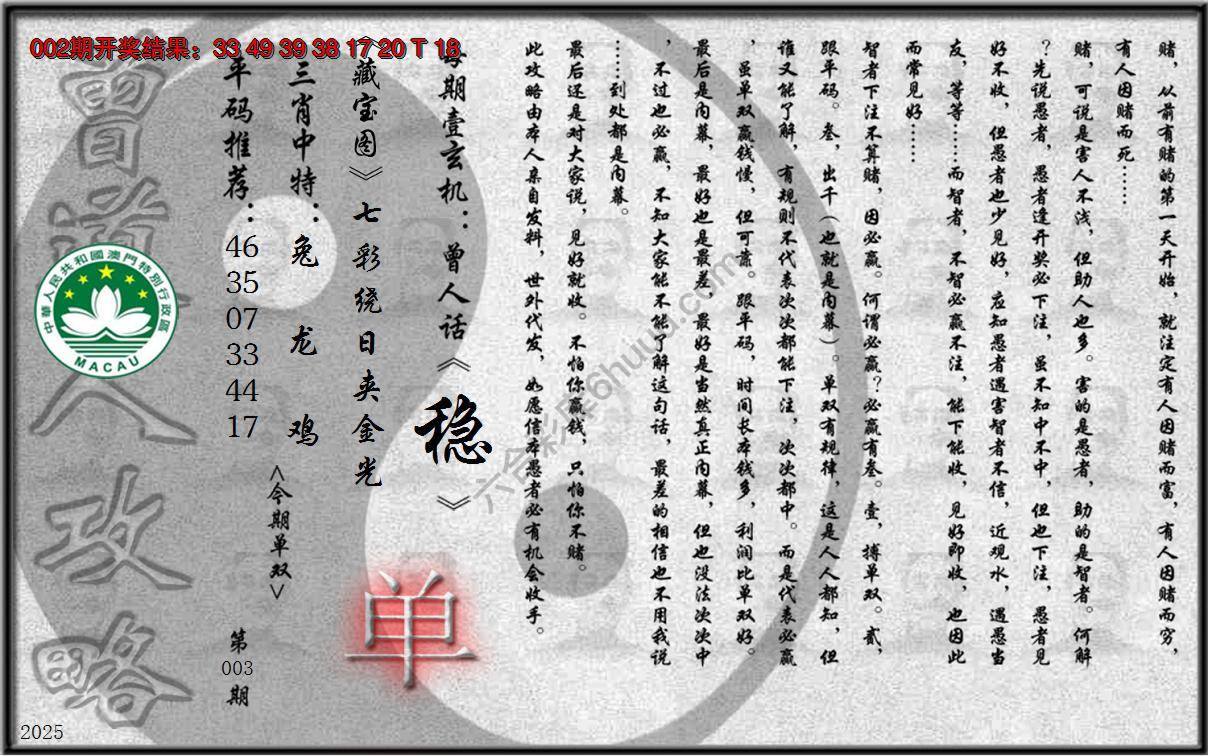 002期开奖结果：33 49 39 38 17 20 T 18
赌，从前有赌的第一天开始，就注定有人因赌而富，有人因赌而穷，
有人因赌而死……
赌，可说是害人不浅，但助人也多。害的是愚者，助的是智者。何解
？先说愚者，愚者逢开奖必下注，虽不知中不中，但也下注，愚者见
好不收，但愚者也少见好，应知愚者遇害智者不信，近观水，遇愚当
友，等等……而智者，不智必赢不注，能下能收，见好即收，也因此
而常见好……
智者下注不算赌，因必赢。何谓必赢？必赢有叁。壹，搏单双。贰，
跟平码。叁，出千（也就是内幕）。单双有规律，这是人人都知，但
谁又能了解，有规则不代表次次都能下注，次次都中。而是代表必赢
，虽单双赢钱慢，但可靠。跟平码，时间长本钱多，利润比单双好。
最后是内幕，最好也是最差，最好是当然真正内幕，但也没法次次中
，不过也必赢，不知大家能不能了解这句话，最差的相信也不用我说
……到处都是内幕。
最后还是对大家说，见好就收。不怕你赢钱，只怕你不赌。
此攻略由本人亲自发料，世外代发，如愿信本愚者必有机会收手。
每期壹玄机：曾人话《稳》
《藏宝图》七彩绕日夹金光
三肖中特：兔 龙 鸡
平码推荐：
46
35
07
33
44
17
<今期单双>
单
第
003
期
曾道人攻略
中華人民共和國澳門特別行政區
MACAU
六合彩库6huu.com
2025